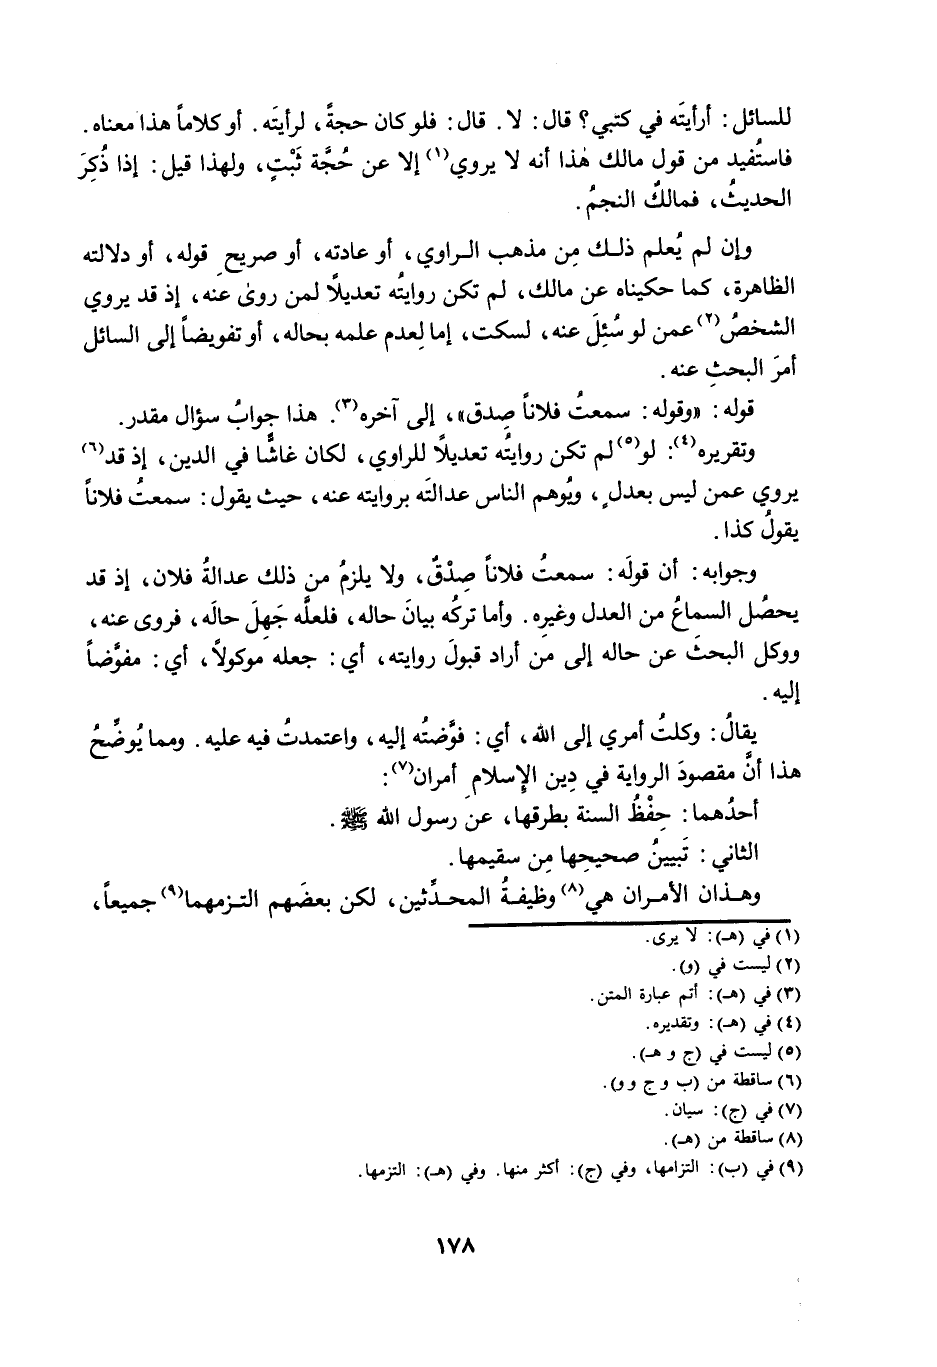 للسائل: أرأيتَه في كتبي؟ قال: لا. قال: فلو كان حجةً، لرأيتَه. أو كلاماً هذا معناه.
فاستُفيد من قول مالك هٰذا أنه لا يروي(١) إلا عن حُجَّة ثَبْتٍ، ولهذا قيل: إذا ذُكِرَ
الحديثُ، فمالكٌ النجمُ.
وإن لم يُعلم ذلك مِن مذهب الراوي، أو عادته، أو صريحِ قوله، أو دلالته
الظاهرة، كما حكيناه عن مالك، لم تكن روايتُه تعديلًا لمن روىٰ عنه، إذ قد يروي
الشخصُ(٢) عمن لو سُئِلَ عنه، لسكت، إما لِعدم علمه بحاله، أو تفويضاً إلى السائل
أمرَ البحثِ عنه.
قوله: «وقوله: سمعتُ فلاناً صِدق»، إلى آخره(٣). هذا جوابُ سؤال مقدر.
وتقريره(٤): لو(٥) لم تكن روايتُه تعديلًا للراوي، لكان غاشًّا في الدين، إذ قد(٦)
يروي عمن ليس بعدلٍ، ويُوهم الناس عدالتَه بروايته عنه، حيث يقول: سمعتُ فلاناً
يقولُ كذا.
وجوابه: أن قولَه: سمعتُ فلاناً صِدْقٌ، ولا يلزمُ من ذلك عدالةُ فلان، إذ قد
يحصُل السماعُ من العدل وغيرِه. وأما تركُه بيانَ حاله، فلعلَّه جَهِلَ حالَه، فروى عنه،
ووكل البحثَ عن حاله إلى من أراد قبولَ روايته، أي: جعله موكولًا، أي: مفوَّضاً
إليه.
يقالُ: وكلتُ أمري إلى الله، أي: فوَّضتُه إليه، واعتمدتُ فيه عليه. ومما يُوضِّحُ
هذا أنَّ مقصودَ الرواية في دِين الإسلامِ أمران(٧):
أحدُهما: حِفْظُ السنة بطرقها، عن رسول الله ﷺ.
الثاني: تَبيينُ صحيحِها مِن سقيمها.
وهذان الأمران هي(٨) وظيفةُ المحدِّثين، لكن بعضَهم التزمهما(٩) جميعاً،
(١) في (هـ): لا يرى.
(٢) ليست في (و).
(٣) في (هـ): أتم عبارة المتن.
(٤) في (هـ): وتقديره.
(٥) ليست في (ج و هـ).
(٦) ساقطة من (ب و ج و و).
(٧) في (ج): سيان.
(٨) ساقطة من (هـ).
(٩) في (ب): التزامها، وفي (ج): أكثر منها. وفي (هـ): التزمها.
١٧٨